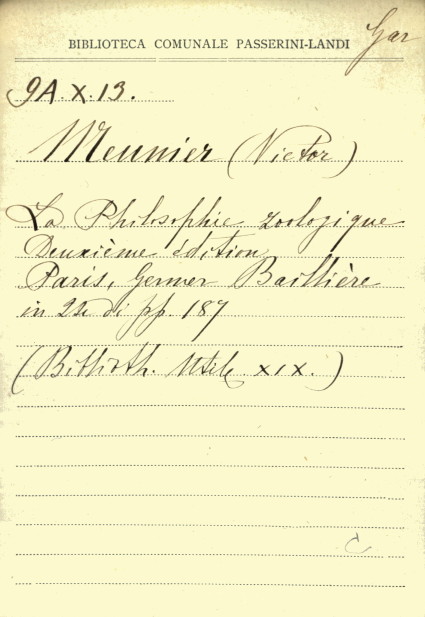 Gar
BIBLIOTECA COMUNALE PASSERINI-LANDI
9A.X.13.
Meunier (Victor)
La Philosophie zoologique
Deuxième édition
Paris, Germer Baillière
in 24 di pp. 187
(Biblioth. Utile XIX.)
C